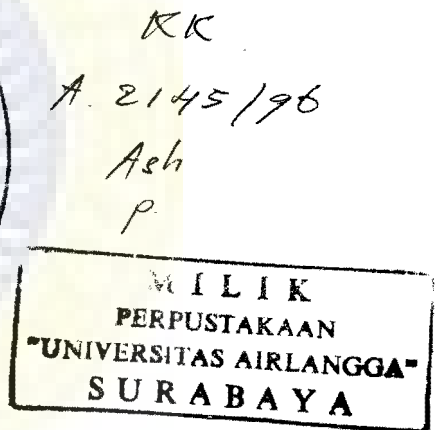 KK
A. 2145/96
Ash
P.
MILIK
PERPUSTAKAAN
"UNIVERSITAS AIRLANGGA"
SURABAYA